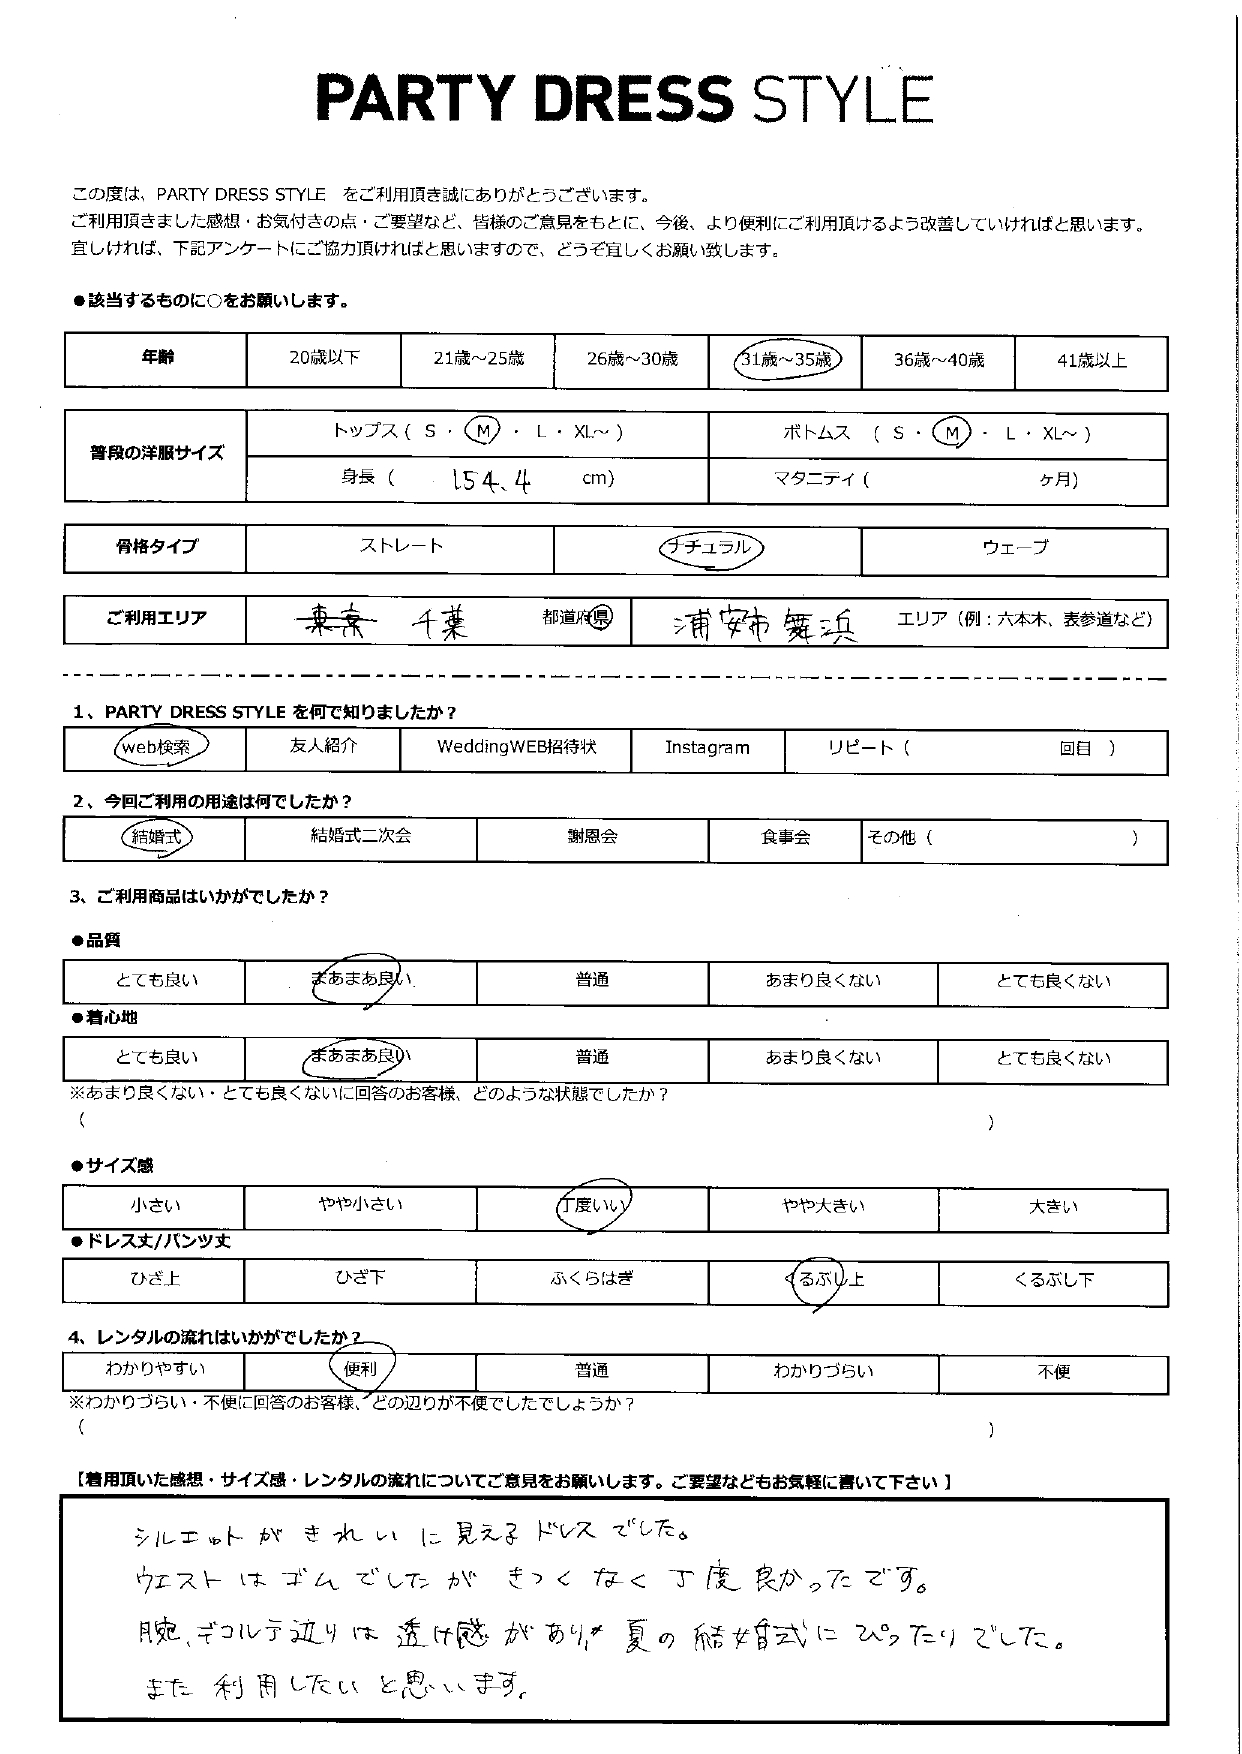 PARTY DRESS STYLE
この度は、PARTY DRESS STYLE をご利用頂き誠にありがとうございます。
ご利用頂きました感想・お気付きの点・ご要望など、皆様のご意見をもとに、今後、より便利にご利用頂けるよう改善していければと思います。
宜しければ、下記アンケートにご協力頂ければと思いますので、どうぞ宜しくお願い致します。
●該当するものに○をお願いします。
年齢 20歳以下 21歳～25歳 26歳～30歳 31歳～35歳 36歳～40歳 41歳以上
普段の洋服サイズ
トップス ( S ・ M ・ L ・ XL～ ) ボトムス ( S ・ M ・ L ・ XL～ )
身長 ( 154.4 cm) マタニティ ( ヶ月)
骨格タイプ ストレート ナチュラル ウェーブ
ご利用エリア 東京 千葉 都道府県 浦安市 舞浜 エリア（例：六本木、表参道など）
1、PARTY DRESS STYLE を何で知りましたか？
web検索 友人紹介 WeddingWEB招待状 Instagram リピート ( 回目 )
2、今回ご利用の用途は何でしたか？
結婚式 結婚式二次会 謝恩会 食事会 その他 ( )
3、ご利用商品はいかがでしたか？
●品質
とても良い まあまあ良い 普通 あまり良くない とても良くない
●着心地
とても良い まあまあ良い 普通 あまり良くない とても良くない
※あまり良くない・とても良くないに回答のお客様、どのような状態でしたか？
( )
●サイズ感
小さい やや小さい 丁度いい やや大きい 大きい
●ドレス丈/パンツ丈
ひざ上 ひざ下 ふくらはぎ くるぶし上 くるぶし下
4、レンタルの流れはいかがでしたか？
わかりやすい 便利 普通 わかりづらい 不便
※わかりづらい・不便に回答のお客様、どの辺りが不便でしたでしょうか？
( )
【着用頂いた感想・サイズ感・レンタルの流れについてご意見をお願いします。ご要望などもお気軽に書いて下さい】
シルエットがきれいに見えるドレスでした。
ウエストはゴムでしたがきつくなく丁度良かったです。
腕、デコルテ辺りは透け感があり、夏の結婚式にぴったりでした。
また利用したいと思います。